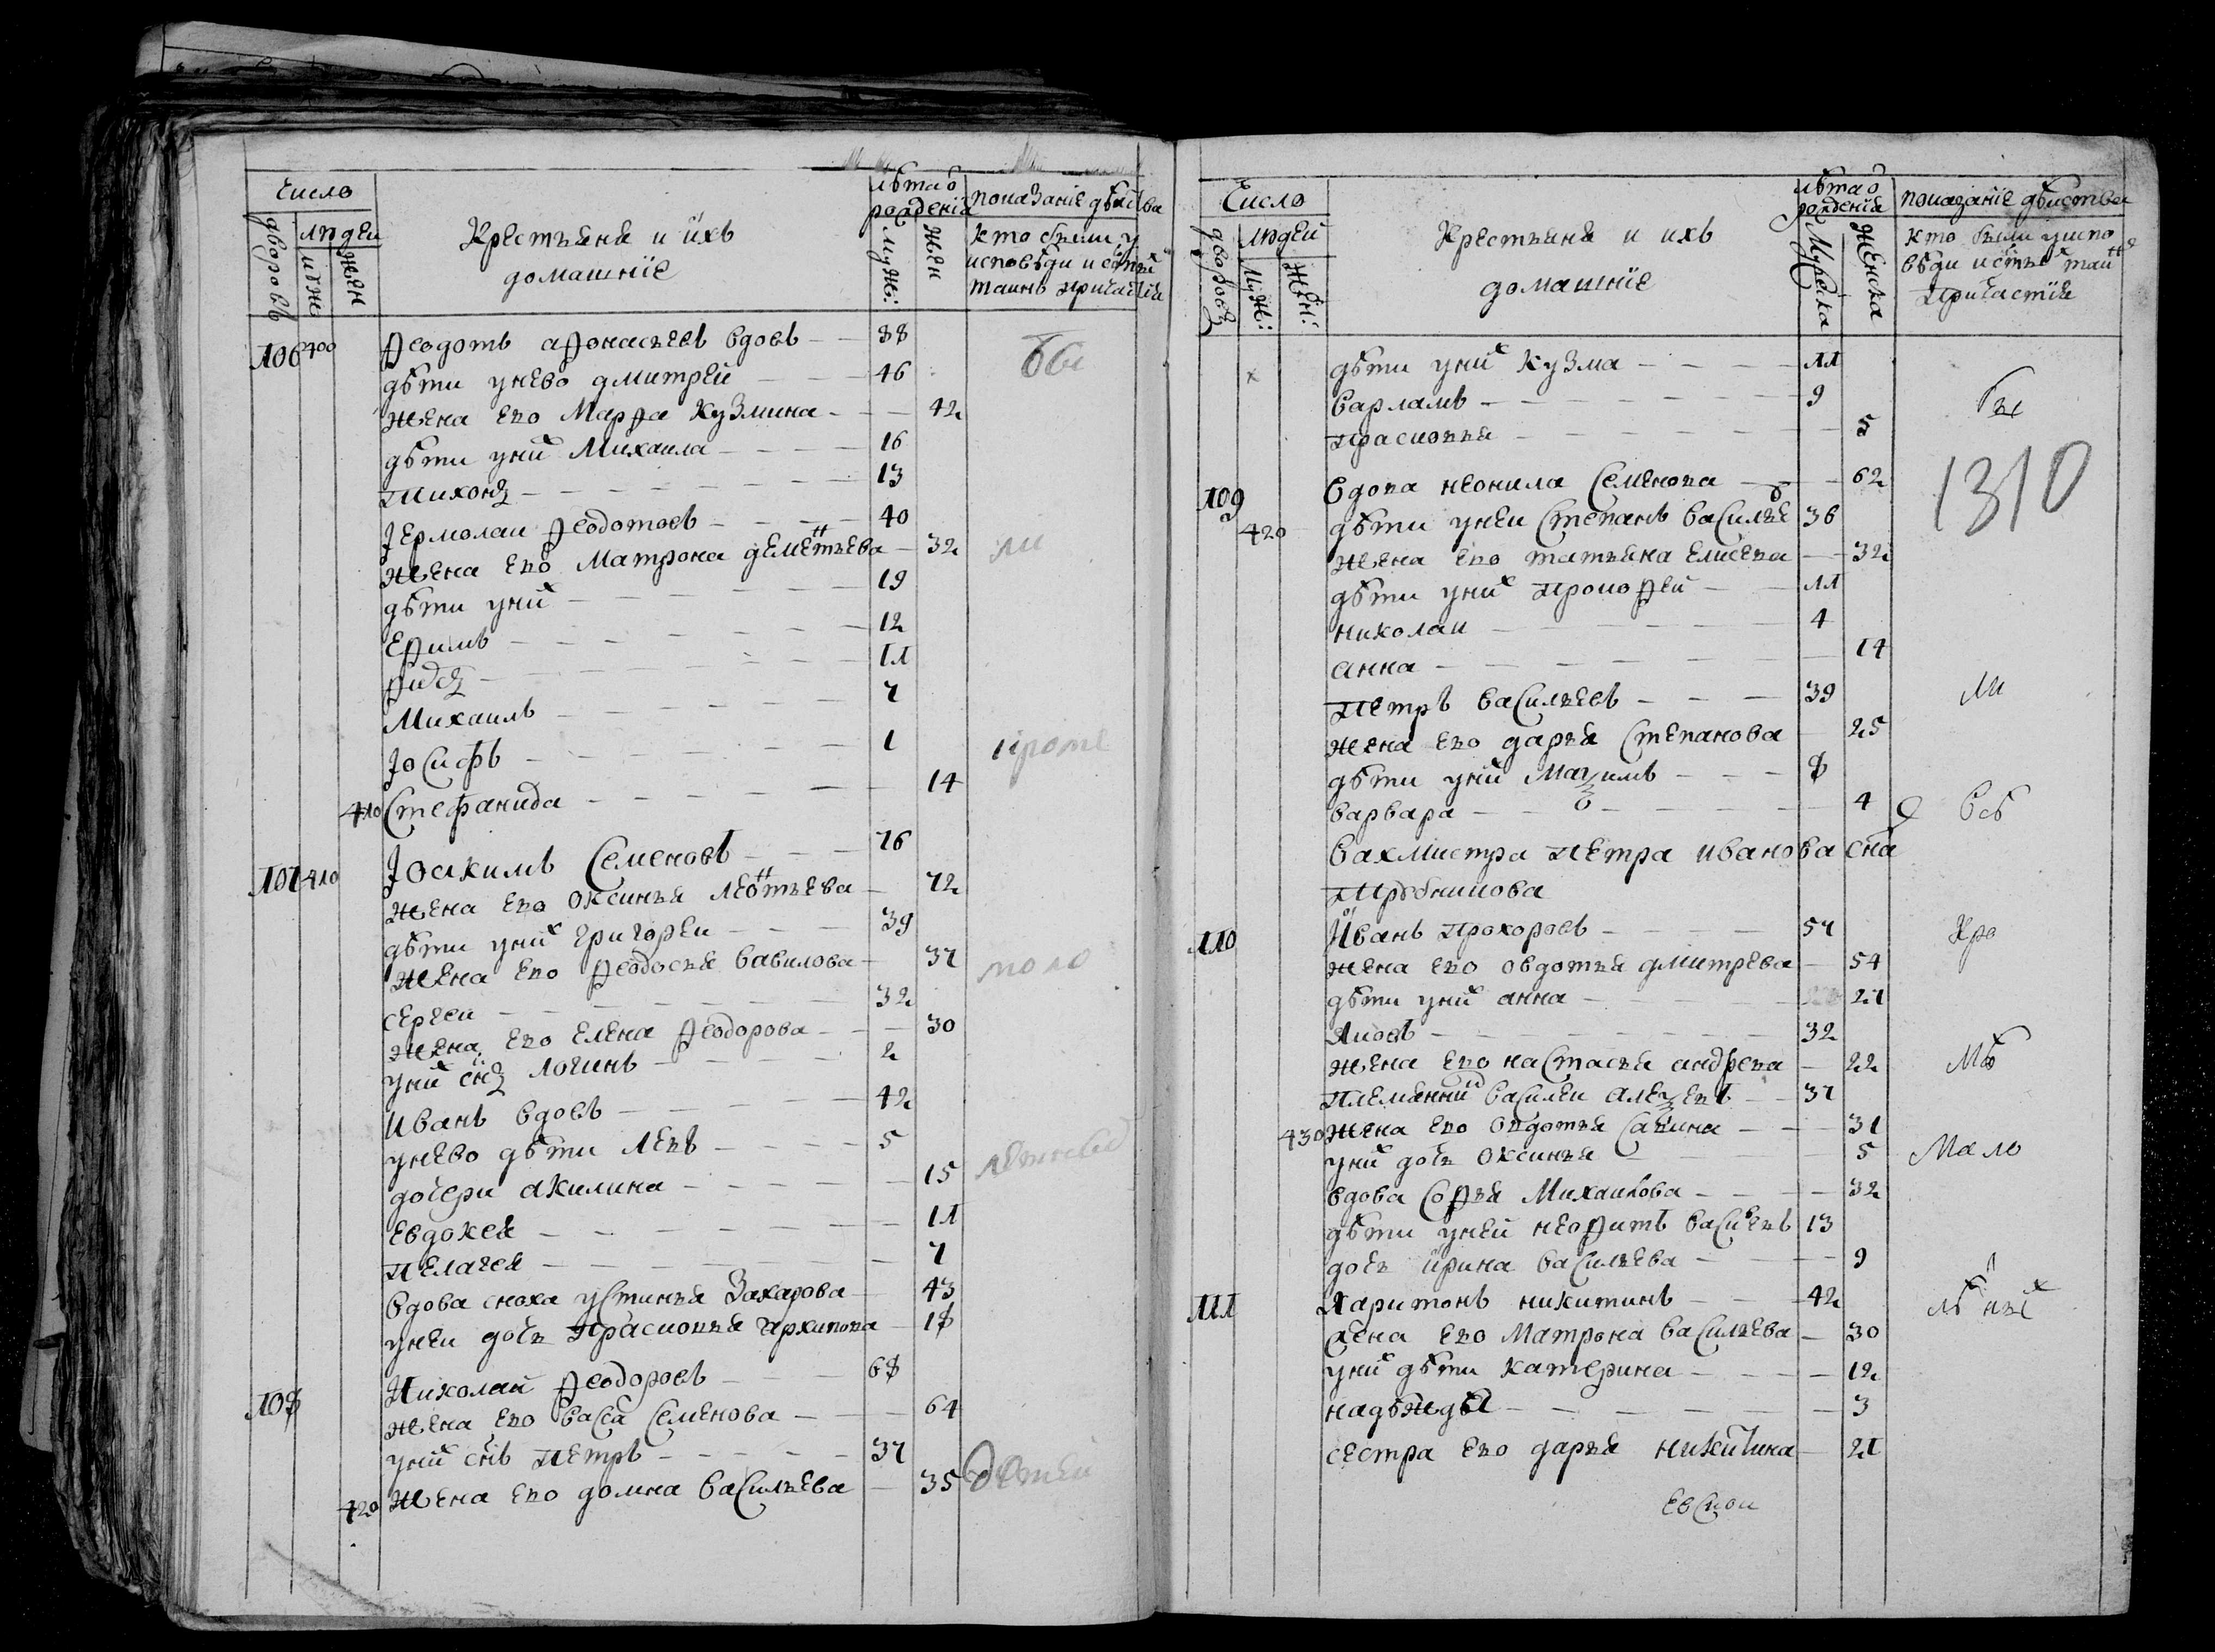 Число
дворовъ
людей
мужс
жен
Крестьяня и ихъ
домашнїе
лѣта ѿ
рождениіѧ
муж:
жен
показанїе дѣйства
кто были у
исповѣди и ст҃ыхъ
таинъ причастїѧ
106 400 Ѳеодотъ аѲонасьевъ вдовъ 88
дѣти унево дмитрей 46
жена ево МарѲа Кузмина 42
дѣти уних Михаила 16
тихонъ 13
Іермолаи Ѳеодотовъ 40
жена ево Матрона деметьева 32
дѣти уних 19
ЕѲимъ 12
11
Михаилъ 7
Іосифъ 1
410 Стефанида 14
107 410 Іоакимъ Семеновъ 76
жена ево Оксинья Леотьева 72
дѣти уних Григореи 39
жена ево Ѳеодосья Вавилова 37
Сергеи 32
жена ево Елена Ѳеодорова 30
уних сн҃ъ Логинъ 2
Иванъ вдовъ 42
унево дѣти Левъ 5
дочери акилина 15
Евдокея 11
пелагея 7
вдова сноха устинья Захарова 43
унеи дочь прасковья архипова 18
108 Николаи Ѳеодоровъ 68
жена ево васса Семенова 64
уних сн҃ъ петръ 37
420 жена ево домна васильева 35
бы
ли
кроме
мало
летнвыхъ
детей
Число
дворовъ
людей
муж:
жен:
Крестьяня и ихъ
домашнїе
лѣта ѿ
рожденїѧ
мужска
женска
показанїе дѣйства
кто были у испо
вѣди и ст҃ых таинъ
причастїѧ
х дѣти уних Кузма 11
варламъ 9
прасковья 5
109 вдова неонила Семенова 62
420 дѣти унеи Степанъ василье 36
жена ево татьяна Елисеева 32
дѣти уних прокоѲей 11
николаи 4
анна 14
петръ васильевъ 39
жена ево дарья Степанова 25
дѣти уних Маѯимъ 8
варвара 4
вахмистра петра иванова сн҃а
110 Иванъ прохоровъ 57
жена ево овдотья дмитрева 54
дѣти уних анна 21
Яковъ 32
жена ево настасья андреева 22
племянник василеи алеѯевъ 37
430 жена ево овдотья Савина 31
уних дочь оксинья 5
вдова СоѲья Михаилова 32
дѣти уней неоѲитъ васиевъ 13
дочь ирина васильева 9
111 Харитонъ никитинъ 42
жена ево Матрона васильева 30
уних дѣти катерина 12
надѣжда 3
сестра ево дарья никитина 21
бы
1310
ли
всѣ
Кро
мѣ
мало
лѣтных